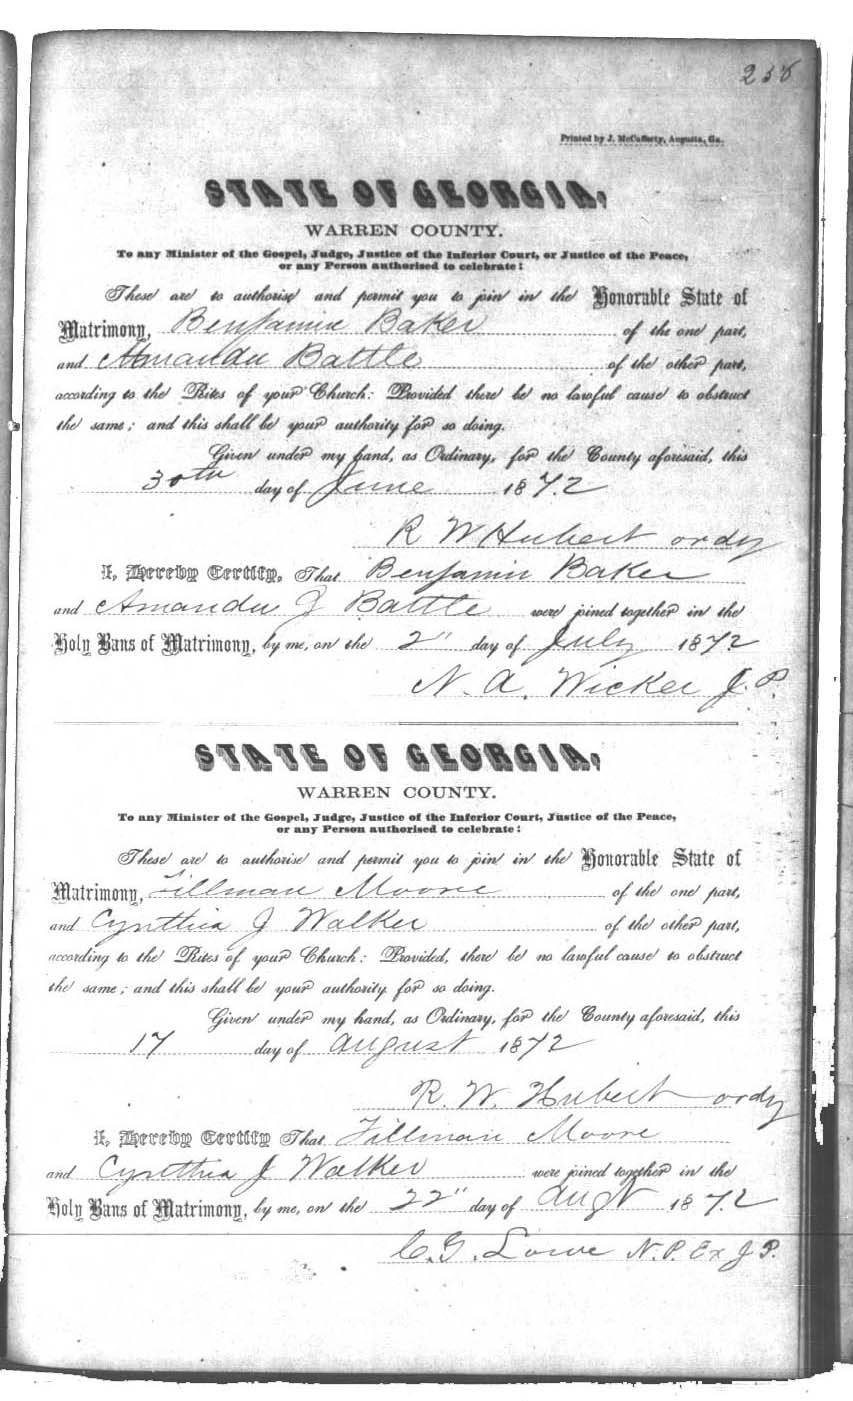 258
Printed by J. McCafferty, Augusta, Ga.
STATE OF GEORGIA,
WARREN COUNTY.
To any Minister of the Gospel, Judge, Justice of the Inferior Court, or Justice of the Peace,
or any Person authorised to celebrate:
These are to authorise and permit you to join in the Honorable State of
Matrimony, Benjamin Baker of the one part,
and Amanda Battle of the other part,
according to the Rites of your Church: Provided there be no lawful cause to obstruct
the same; and this shall be your authority for so doing.
Given under my hand, as Ordinary, for the County aforesaid, this
30th day of June 1872
R W Hubert ordy
I, Hereby Certify, That Benjamin Baker
and Amanda J Battle were joined together in the
Holy Bans of Matrimony, by me, on the 2" day of July 1872
N. A. Wicker J. P.
STATE OF GEORGIA,
WARREN COUNTY.
To any Minister of the Gospel, Judge, Justice of the Inferior Court, Justice of the Peace,
or any Person authorised to celebrate:
These are to authorise and permit you to join in the Honorable State of
Matrimony, Tillman Moore of the one part,
and Cynthia J Walker of the other part,
according to the Rites of your Church: Provided, there be no lawful cause to obstruct
the same; and this shall be your authority for so doing.
Given under my hand, as Ordinary, for the County aforesaid, this
17 day of August 1872
R. W. Hubert ordy
I, Hereby Certify That Tillman Moore
and Cynthia J Walker were joined together in the
Holy Bans of Matrimony, by me, on the 22" day of Augt 1872
C. G. Lowe N. P. Ex J P.